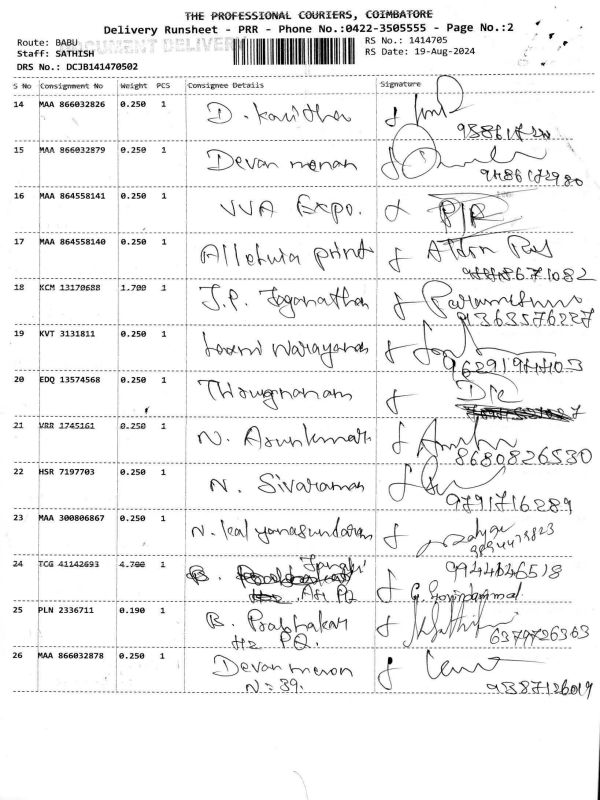 THE PROFESSIONAL COURIERS, COIMBATORE
Delivery Runsheet - PRR - Phone No.:0422-3505555 - Page No.:2
Route: BABU
RS No.: 1414705
Staff: SATHISH
RS Date: 19-Aug-2024
DOCUMENT DELIVERY
DRS No.: DCJB141470502
S No Consignment No Weight PCS Consignee Details Signature
14 MAA 866032826 0.250 1 D. Kavitha
15 MAA 866032879 0.250 1 Devan menan
16 MAA 864558141 0.250 1 VVA Expo.
17 MAA 864558140 0.250 1 Alleluia print
18 KCM 13170688 1.700 1 J.P. Joganathan
9363576227
19 KVT 3131811 0.250 1 Laxmi Narayanan
20 EDQ 13574568 0.250 1 Thirugnanam
21 VRR 1745161 0.250 1 N. Arunkumar
8680826530
22 HSR 7197703 0.250 1 N. Sivaraman
9791716289
23 MAA 300806867 0.250 1 N. Kalyanasundaram
24 TCG 41142693 4.700 1 B.
G. Govindammal
25 PLN 2336711 0.190 1 B. Prabhakar
Hz PQ.
6379726363
26 MAA 866032878 0.250 1 Devan menon
N = 39.